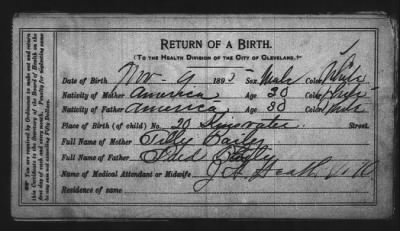 RETURN OF A BIRTH.
(TO THE HEALTH DIVISION OF THE CITY OF CLEVELAND.)
Date of Birth Nov 9 189 Sex Male Color White
Nativity of Mother America Age 30 Color White
Nativity of Father America Age 30 Color White
Place of Birth (of child) No. 20 Street.
Full Name of Mother Tilly
Full Name of Father Fred
Name of Medical Attendant or Midwife J. A. Heath
Residence of same
You are required by Ordinance to make out and return this Certificate to the Secretary of the Board of Health on the first day of each and every month. Penalty for neglecting same not exceeding Fifty Dollars.